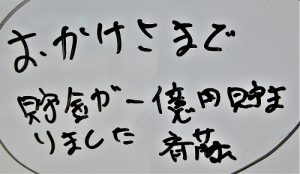 おかげさまで
貯金が一億円貯ま
りました 斉藤